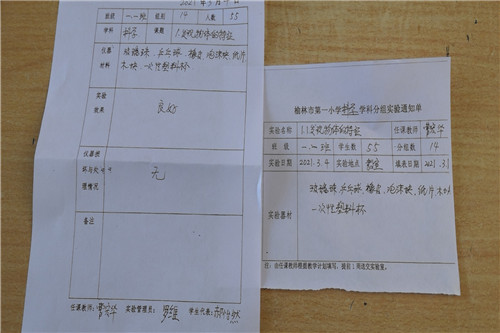 2021年3月4日
班级 一.一班 组别 14 人数 55
学科 科学 课题 1.发现物体的特征
仪器材料 玻璃珠 乒乓球 橡皮 泡沫块 纸片
木块 一次性塑料杯
实验效果 良好
仪器损坏与处理情况 无
备注
任课教师: 实验管理员: 罗维 学生代表:
榆林市第一小学科学学科分组实验通知单
实验名称 1.1发现物体的特征 任课教师
班级 一.一班 学生数 55 分组数 14
实验日期 2021.3.4 实验地点 教室 填表日期 2021.3.1
实验器材 玻璃珠 乒乓球 橡皮 泡沫块 纸片 木块
一次性塑料杯
注:由任课教师根据教学计划填写,提前1周送交实验室。